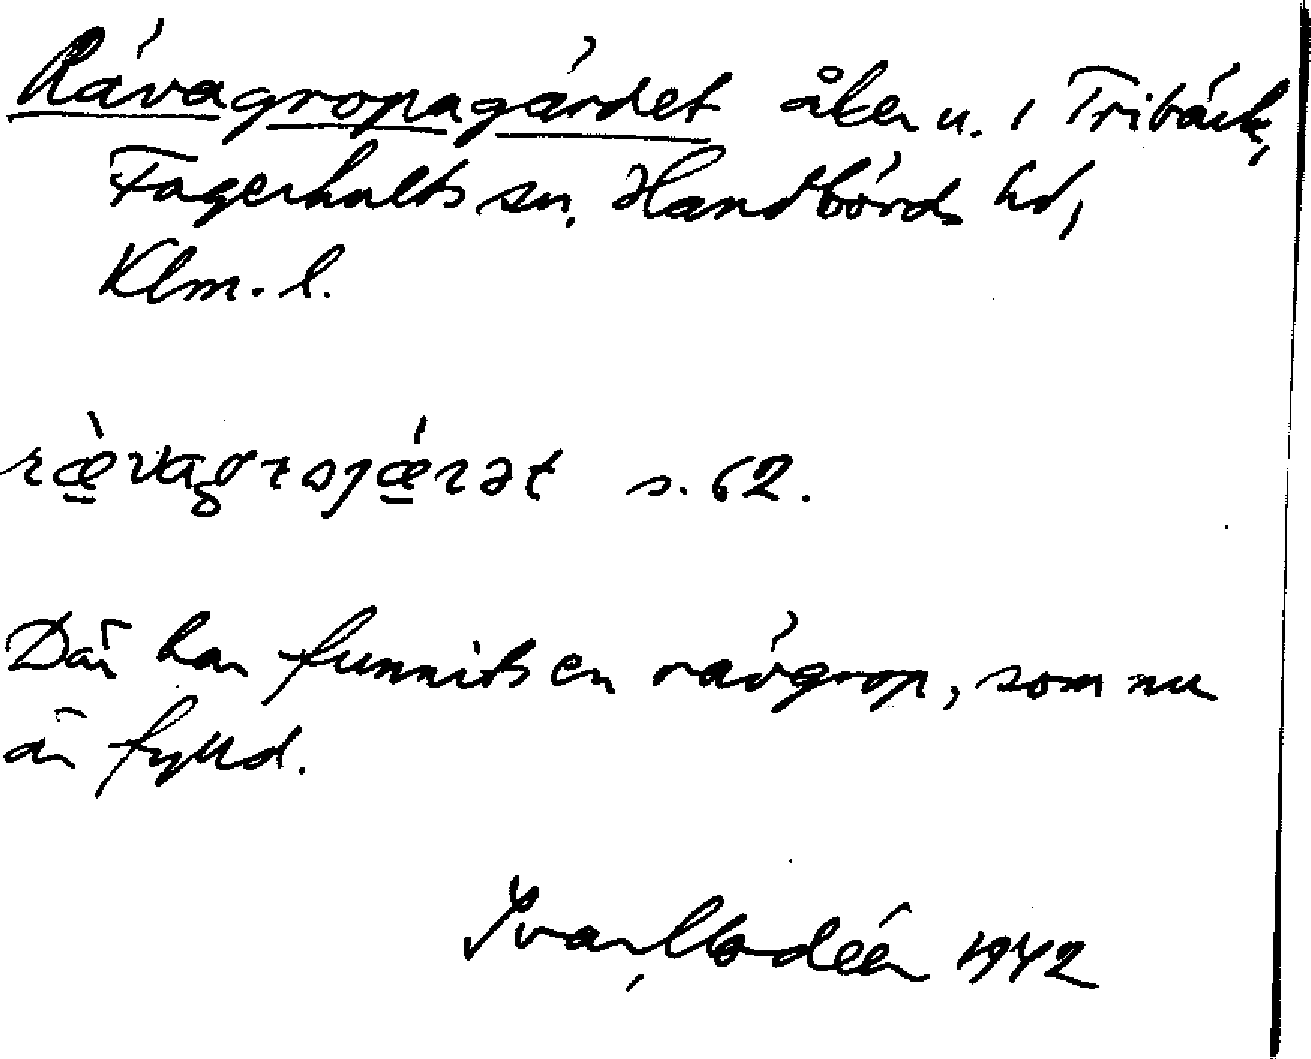 Rävagropagärdet åker u. i Tribäck,
Fagerhults sn. Handbörds hd,
Klm. l.
ræ̀vagropjǽrət s. 62.
Där har funnits en rävgrop, som nu
är fylld.
Ivar Modéer 1942